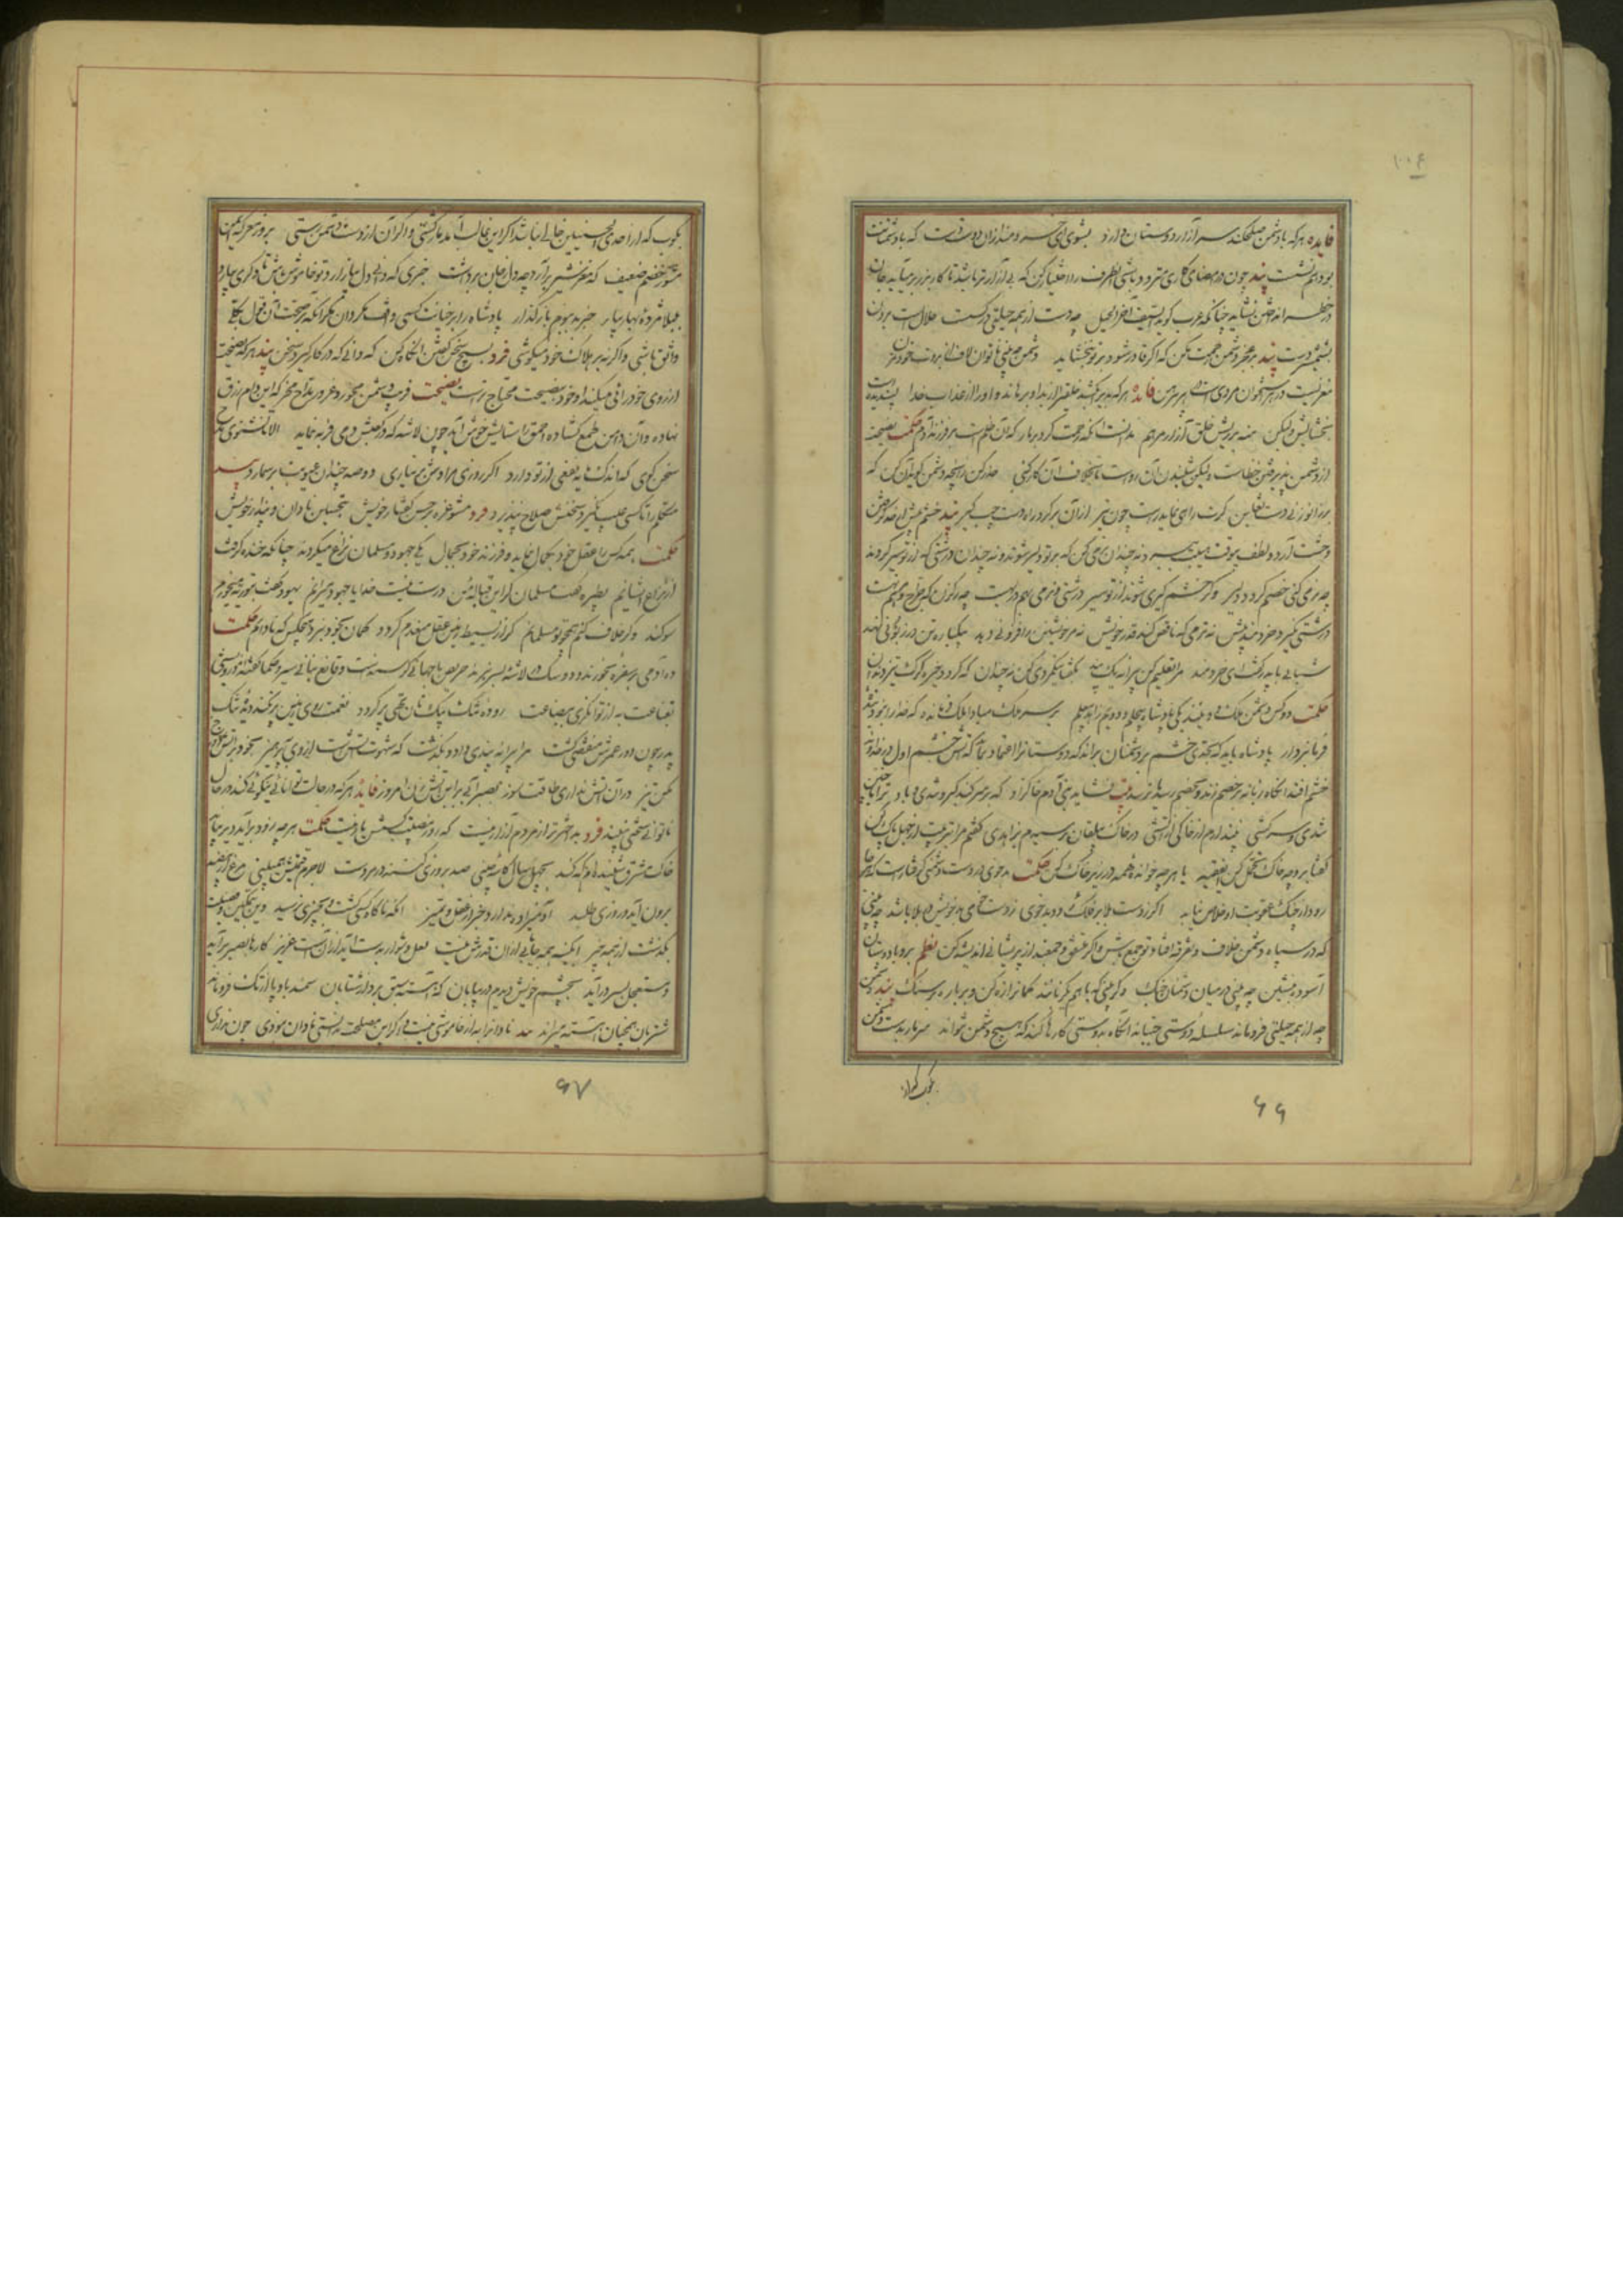 فایده هرکه با دشمن صلح کند سر آزار دوستان دارد بشوی ای خردمند ازان دوست دست که با دشمنت
بود هم نشست پند چون در امضای کاری متردد باشی آنطرف را اختیار کن که بی آزارتر باشد تا کار بزر برمیآید جان
در خطر انداختن نشاید چنانکه عرب گوید السیف آخر الحیل چو دست از همه حیلتی در گسست حلال است بردن
بشمشیر دست پند بر عجز دشمن رحمت مکن که اگر قادر شود بر تو نبخشاید دشمن چو بینی ناتوان لاف از بروت خود مزن
مغزیست در هر استخوان مردیست در هر پیرهن فایده هرکه بدیرا بکشد خلقیرا از بلای او برهاند و او را از عذاب خدا پسندیده است
بخشایش ولیکن منه بر ریش خلق آزار مرهم ندانست آنکه رحمت کرد بر مار که آن ظلم است بر فرزند آدم حکمت نصیحت
از دشمن پذیرفتن خطاست ولیکن شنیدن آن رواست تا بخلاف آن کار کنی حذر کن زانچه دشمن گوید آن کن که
بر زانو زنی دست تغابن گرت راهی نماید راست چون تیر ازان برگرد و راه دست چپ گیر پند خشم بیش از حد گرفتن
وحشت آرد و لطف بیوقت هیبت ببرد نه چندان نرمی کن که بر تو دلیر شوند و نه چندان درشتی که از تو سیر گردند
چو نرمی کنی خصم گردد دلیر وگر خشم گیری شوند از تو سیر درشتی و نرمی بهم در بهست چو رگزن که جراح و مرهم نهست
درشتی نگیرد خردمند پیش نه نرمی که ناقص کند قدر خویش نه مر خویشتن را فزونی دهد نه یکباره تن در زبونی نهد
شبانی با پدر گفت ای خردمند مرا تعلیم کن پیرانه یک پند بگفتا نیکمردی کن نه چندان که گردد خیره گرگ تیز دندان
حکمت دو کس دشمن ملک و دینند یکی پادشاه بیحلم و دویم زاهد بیعلم بر سر ملک مباد آن ملک فرمانده که خدا را نبود بنده
فرمانبردار پادشاه باید که بحدی خشم بر دشمنان براند که دوستانرا اعتماد نماند که آتش خشم اول در خداوند
خشم افتد آنگاه زبانه بر خصم زند و بخصم رسد یا نرسد بیت نشاید بنی آدم خاکزاد که بر سر کند کبر و تندی و باد ترا با چنین
تندی و سرکشی نپندارم از خاکی از آتشی در خاک بیلقان برسیدم بزاهدی گفتم مرا بتربیت از جهل پاک کن
گفتا برو چو خاک تحمل کن ای فقیه یا هرچه خوانده همه در زیر خاک کن حکمت بدخوی در دست دشمنی گرفتارست که هرجا
رود از چنگ عقوبت او خلاص نیابد اگر ز دست بلا بر فلک رود بدخوی ز دست خوی بد خویش در بلا باشد چو بینی
که در سپاه دشمن خلاف و تفرقه افتاد تو جمع باش و اگر متفق و جمعند از پریشانی اندیشه کن نظم برو با دوستان
آسوده بنشین چو بینی در میان دشمنان جنگ وگر بینی که با هم یکزبانند کمانرا زه کن و بر باره بر سنگ پند دشمن
چو از همه حیلتی فرو ماند سلسله دوستی جنباند آنگاه بدوستی کارها کند که هیچ دشمن نتواند سر مار بدست دشمن
بکوب که از احدی الحسنیین خالی نباشد اگر این غالب آمد مار کشتی و اگر آن از دست دشمن رستی بروز معرکه ایمن
مشو ز خصم ضعیف که مغز شیر برآرد چو دل ز جان برداشت خبری که دانی دل بیازارد تو خاموش باش تا دیگری بیارد
بلبلا مژده بهار بیار خبر بد ببوم باز گذار پادشاه را بر خیانت کسی واقف مگردان مگر آنکه بر صحبت آن قول بکلی
واثق باشی واگرنه بر هلاک خود میکوشی فرد بسیچ سخن گفتن آنگاه کن که دانی که در کار گیرد سخن پند هرکه نصیحت
از روی خودرائی میکند او خود بنصیحت محتاج تر است نصیحت فریب دشمن مخور و غرور مداح مخر که این دام زرق
نهاده و آن دامن طمع گشاده احمق را ستایش خوش آید چون لاشه که در کعبش دمی فربه نماید الا تا نشنوی مدح
سخن گوی که اندک مایه نفعی از تو دارد اگر روزی مرادش برنیاری دو صد چندان عیوبت برشمارد پند
متکلم را تا کسی عیب نگیرد سخنش صلاح نپذیرد فرد مشو غره بر حسن گفتار خویش بتحسین نادان و پندار خویش
حکمت همه کس را عقل خود بکمال نماید و فرزند خود بجمال یکی جهود و مسلمان نزاع میکردند چنانکه خنده گرفت
از نزاع ایشانم بطیره گفت مسلمان گر این قباله من درست نیست خدایا جهود میرانم یهود گفت بتوریة میخورم
سوگند وگر خلاف کنم همچو تو مسلمانم گر از بسیط زمین عقل منعدم گردد گمان بخود نبرد هیچکس که نادانم حکمت
ده آدمی بر سفره بخورند و دو سگ بر لاشه بسر نبرند حریص با جهانی گرسنه است و قانع بنانی سیر و حکما گفته اند درویشی
بقناعت به از توانگری ببضاعت روده تنگ بیک نان تهی پر گردد نعمت روی زمین پر نکند دیده تنگ
پدر چون دور عمرش منقضی گشت مرا پیرانه پندی داد و بگذشت که شهوت آتش است از وی بپرهیز بخود بر آتش دوزخ
مکن تیز در آن آتش نداری طاقت سوز بصبر آبی برین آتش زن امروز فایده هرکه در حالت توانائی نیکوئی نکند در حال
ناتوانی سختی بیند فرد بد اختر تر از مردم آزار نیست که روز مصیبت کسش یار نیست حکمت هرچه زود برآید دیر نپاید
خاک مشرق شنیده ام که کنند بچهل سال کاسه چینی صد بروزی کنند در مردشت لاجرم قیمتش همی بینی مرغک از بیضه
برون آید و روزی طلبد آدمیزاده ندارد خبر از عقل و تمیز آنکه ناگاه کسی گشت و بچیزی نرسید وین بتمکین و فضیلت
بگذشت از همه چیز آبگینه همه جا یابی ازان قدرش نیست لعل دشوار بدست آید از آنست عزیز کارها بصبر برآید
و مستعجل بسر درآید بچشم خویش دیدم در بیابان که آهسته سبق برد از شتابان سمند بادپا از تک فرو ماند
شتربان همچنان آهسته میراند پند نادانرا به از خاموشی نیست و اگر این مصلحت بدانستی نادان نبودی چون نداری
بکوب که از
۶۶
۶۷
۱۰۶